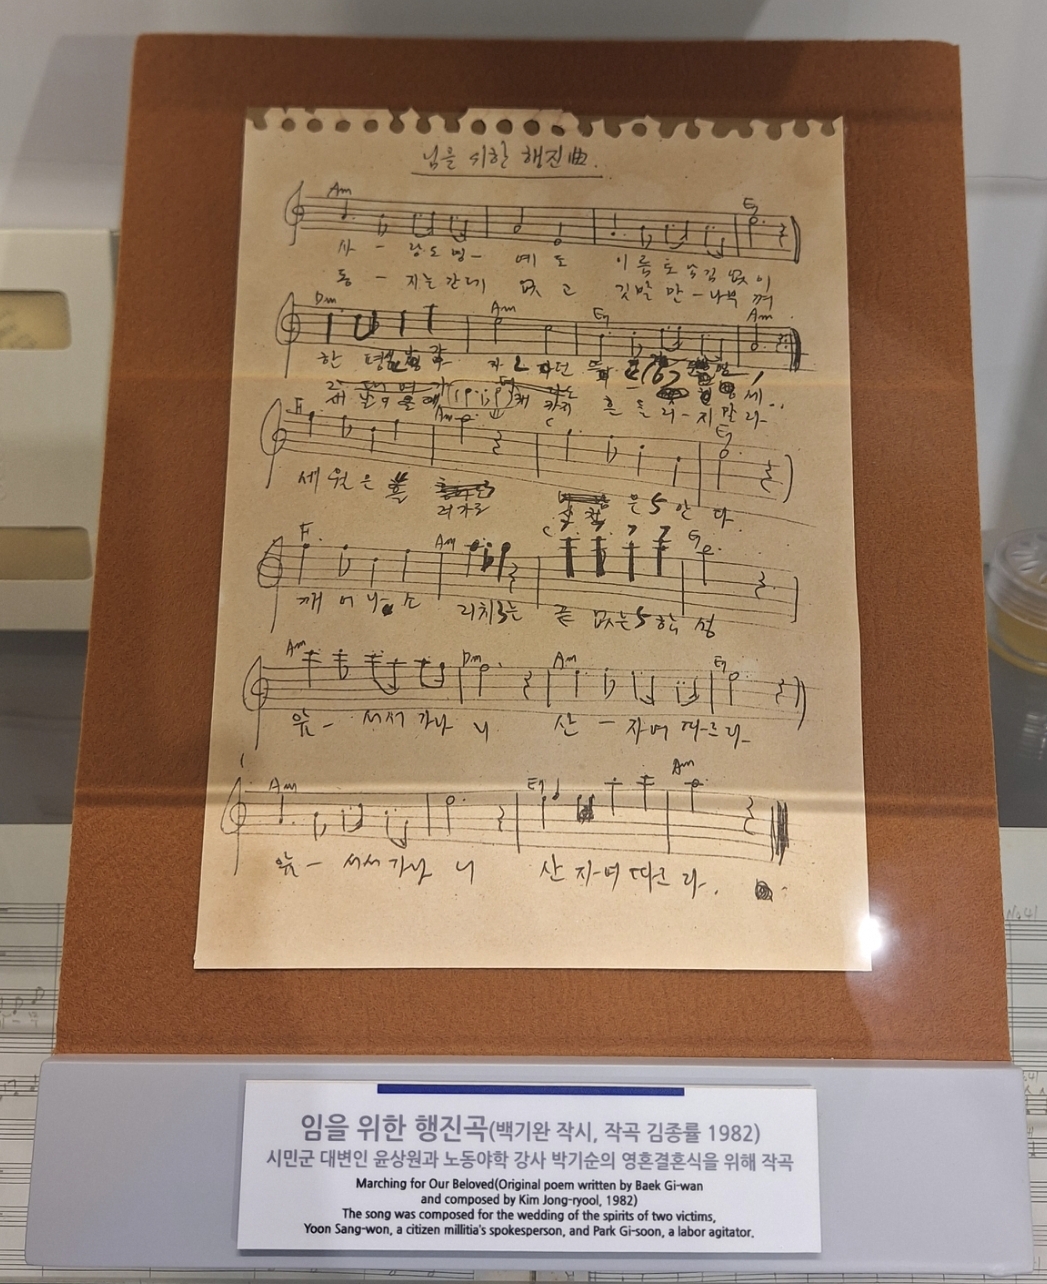 님을 위한 행진曲.
Am E7
사 - 랑도 명 - 예 도 이 름 도 남김 없 이
동 - 지는 간데 없 고 깃발 만 - 나부 껴
Dm Am E7 Am
한 평생
자 던
세 ..
새 날이 올 때 까지 흔 들 리 - 지 말 라 -
F Am C E7
세 월 은 흘
러가도
산 천 은 안 다.
F. Am C E7
깨 어 나 소 리치는 끝 없는 함 성
Am Dm Am E7
앞 - 서서 가나 니 산 - 자여 따르라 -
Am E7 Am
앞 - 서서 가나 니 산 자 - 여 따르 라.
임을 위한 행진곡(백기완 작시, 작곡 김종률 1982)
시민군 대변인 윤상원과 노동야학 강사 박기순의 영혼결혼식을 위해 작곡
Marching for Our Beloved(Original poem written by Baek Gi-wan
and composed by Kim Jong-ryool, 1982)
The song was composed for the wedding of the spirits of two victims,
Yoon Sang-won, a citizen millitia's spokesperson, and Park Gi-soon, a labor agitator.